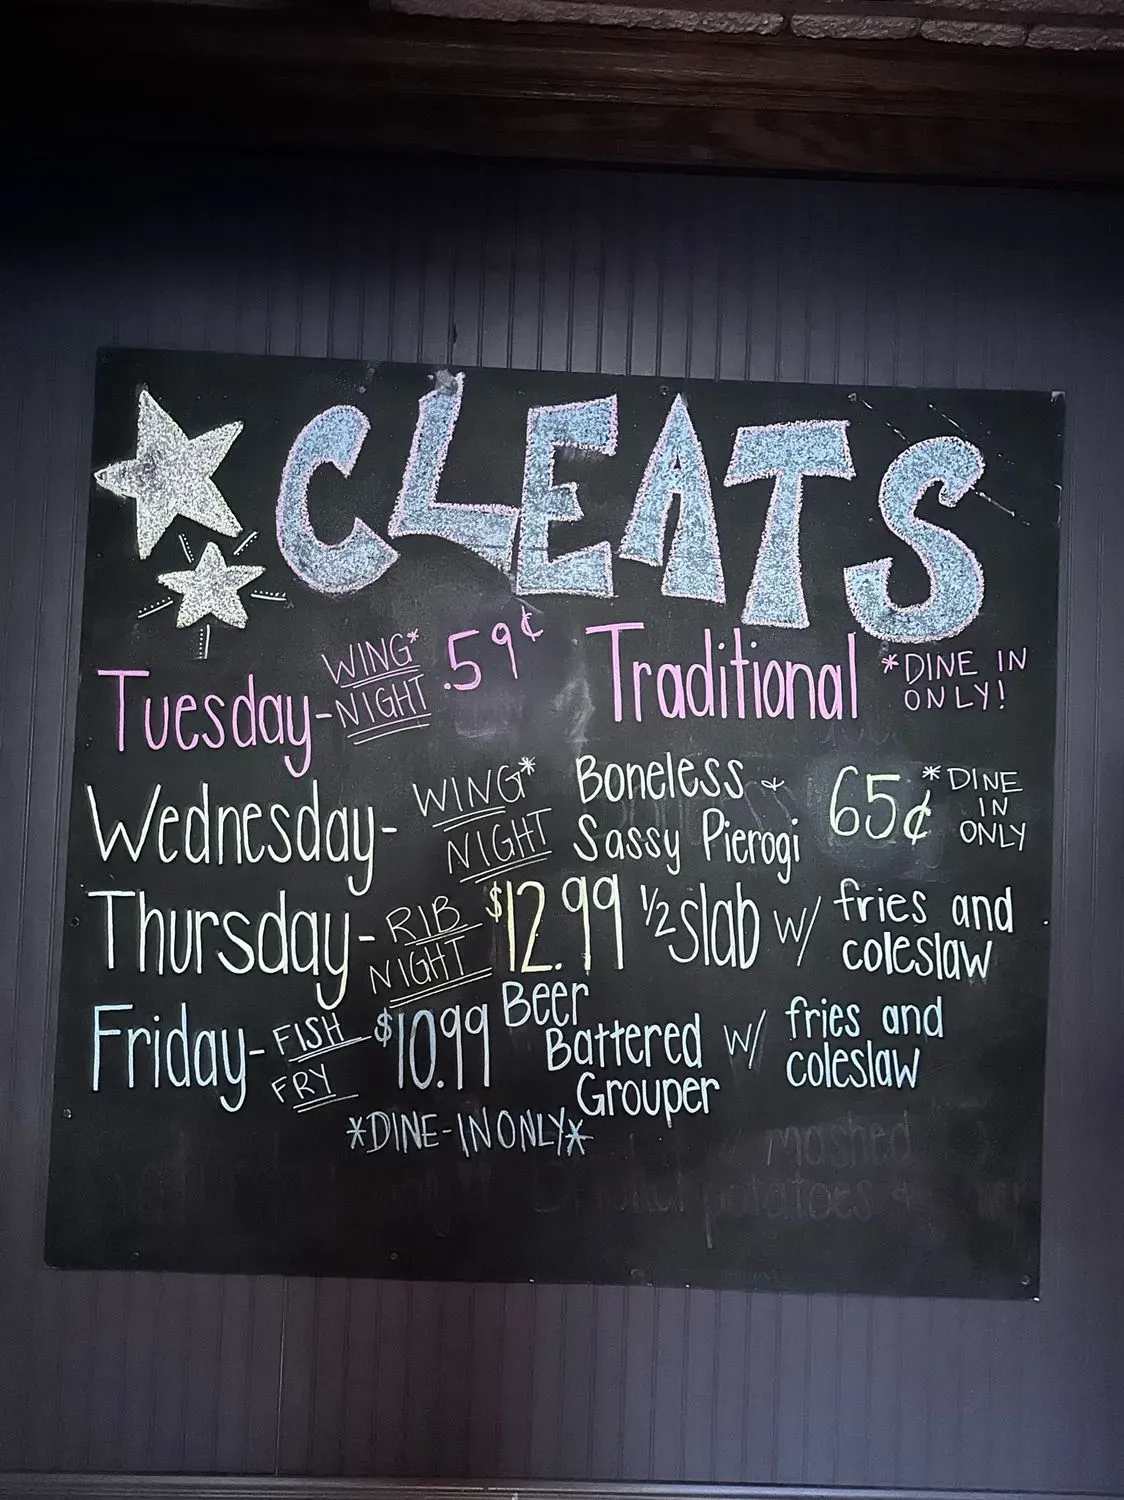 CLEATS
Tuesday- WING* NIGHT .59¢ Traditional *DINE IN ONLY!
Wednesday- WING* NIGHT Boneless & Sassy Pierogi 65¢ *DINE IN ONLY
Thursday- RIB NIGHT $12.99 ½ slab w/ fries and coleslaw
Friday- FISH FRY $10.99 Beer Battered Grouper w/ fries and coleslaw
*DINE-IN ONLY*
mashed
potatoes